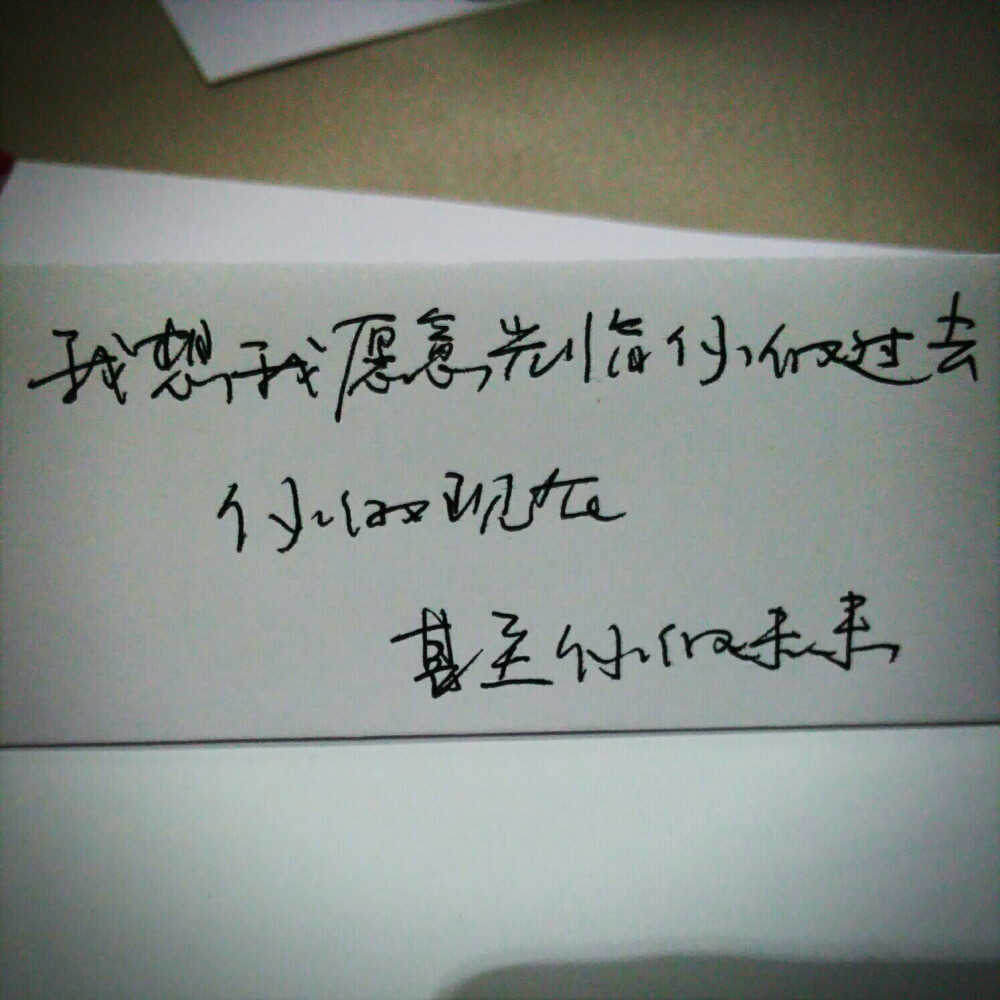 我想,我愿意光临你的过去
你的现在
甚至你的未来,